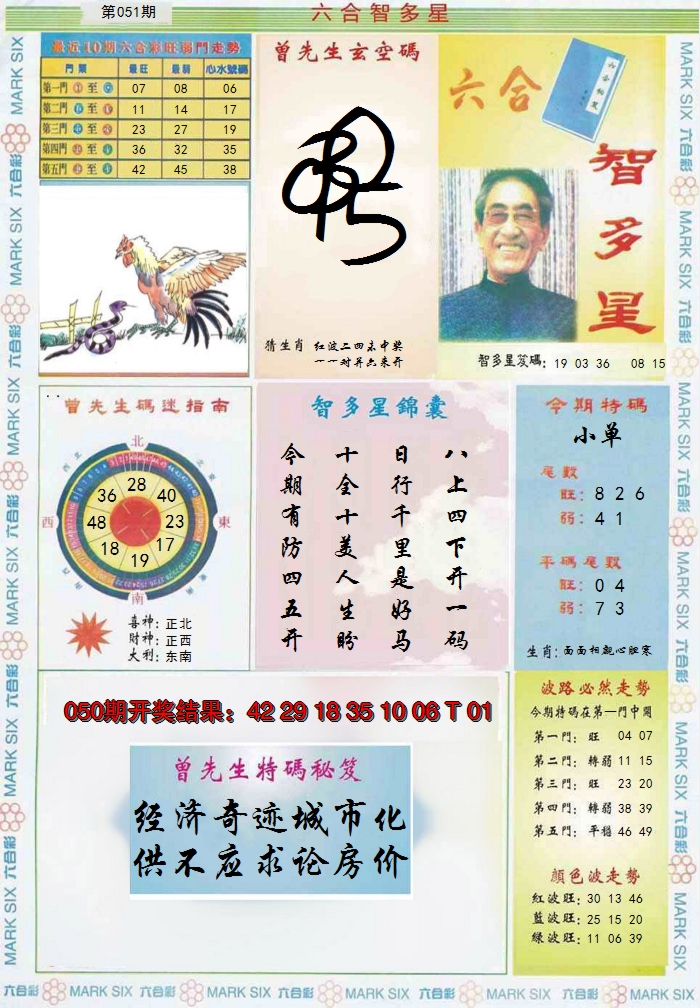 第051期
六合智多星
最近10期六合彩旺弱門走勢
門類 最旺 最弱 心水號碼
第一門 至 07 08 06
第二門 至 11 14 17
第三門 至 23 27 19
第四門 至 36 32 35
第五門 至 42 45 38
曾先生玄空碼
猜生肖 红波二四未中奖
一一对开六来开
六合
六合秘笈
智多星
智多星笈碼: 19 03 36 08 15
曾先生碼迷指南
北
西北
東北
西
東
南
28
36 40
48 23
18 17
19
喜神: 正北
财神: 正西
大利: 东南
智多星錦囊
八上四下开一码
日行千里是好马
十全十美人生盼
今期有防四五开
今期特碼
小单
尾數
旺: 8 2 6
弱: 4 1
平碼尾數
旺: 0 4
弱: 7 3
生肖: 面面相觑心胆寒
050期开奖结果: 42 29 18 35 10 06 T 01
曾先生特碼秘笈
经济奇迹城市化
供不应求论房价
波路必然走勢
今期特碼在第一門中開
第一門: 旺 04 07
第二門: 轉弱 11 15
第三門: 旺 23 20
第四門: 轉弱 38 39
第五門: 平穩 46 49
顏色波走勢
紅波旺: 30 13 46
藍波旺: 25 15 20
綠波旺: 11 06 39
MARK SIX 六合彩 MARK SIX 六合彩 MARK SIX 六合彩 MARK SIX 六合彩 MARK SIX 六合彩